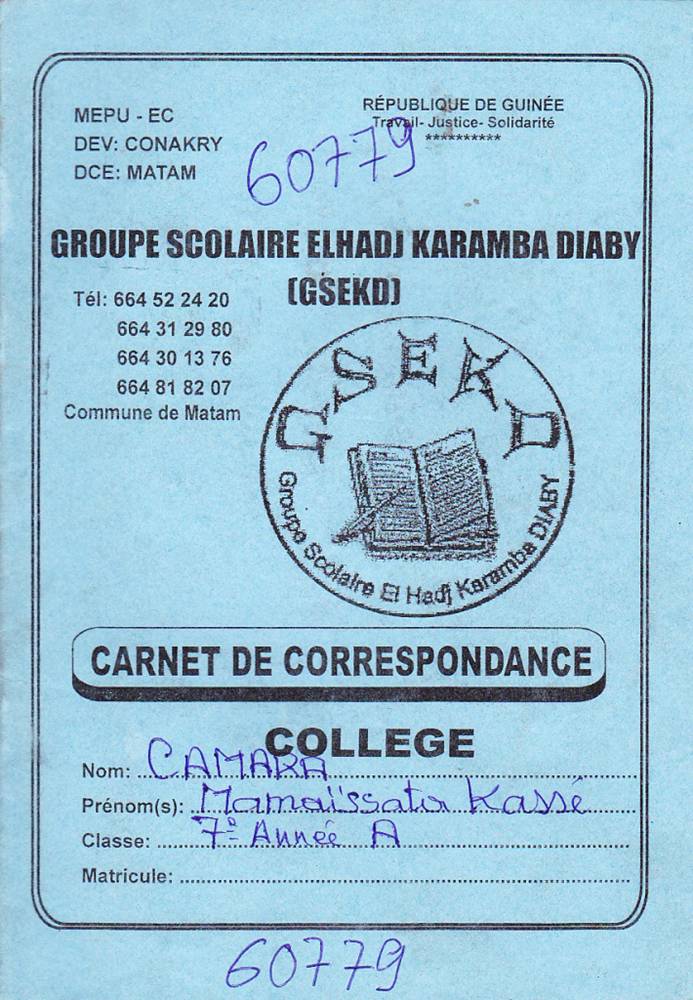 MEPU - EC
RÉPUBLIQUE DE GUINÉE
DEV: CONAKRY
Travail- Justice- Solidarité
DCE: MATAM
**********
60779
GROUPE SCOLAIRE ELHADJ KARAMBA DIABY
(GSEKD)
Tél: 664 52 24 20
664 31 29 80
664 30 13 76
664 81 82 07
Commune de Matam
GSEKD
Groupe Scolaire El Hadj Karamba DIABY
CARNET DE CORRESPONDANCE
COLLEGE
Nom: CAMARA
Prénom(s): Mamaïssata Kassé
Classe: 7è Année A
Matricule:
60779